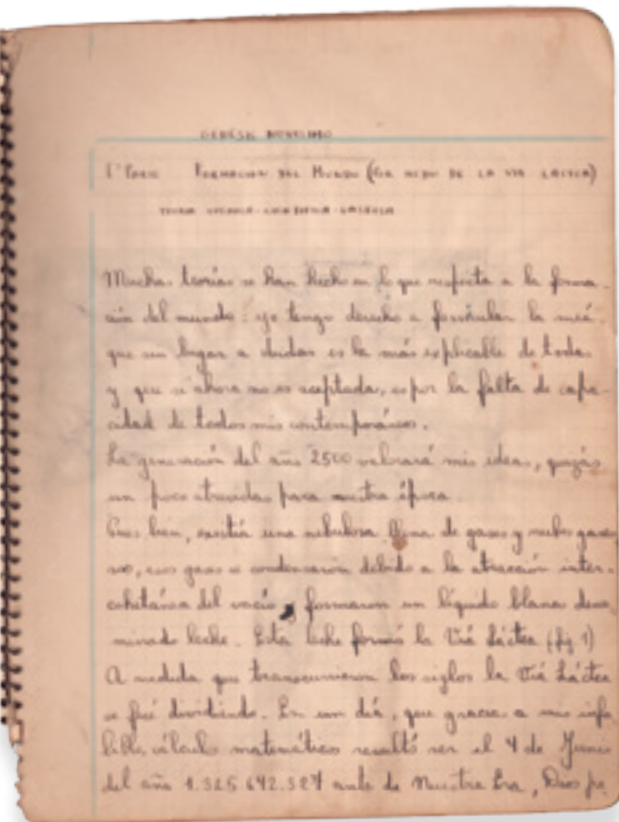 GENESIS
1ª Parte FORMACION DEL MUNDO (POR MEDIO DE LA VIA LACTEA)
TEORIA
Muchas teorías se han hecho en lo que respecta a la forma-
ción del mundo: yo tengo derecho a formular la miá
que sin lugar a dudas es la más esplicable de todas
y que si ahora no es aceptada, es por la falta de capa-
cidad de todos mis contemporáneos.
La generación del año 2500 valorará mis ideas, quizás
un poco atrevidas para nuestra época.
Pues bien, existía una nebulosa llena de gases y nubes gaseo
sas, esos gases se condensaron debido a la atracción inter-
del vacío y formaron un líquido blanco deno-
minado leche. Esta leche formó la Viá Láctea (fig 1)
A medida que transcurrieron los siglos la Viá Láctea
se fué dividiendo. En un día, que gracias a mis infa
libles cálculos matemáticos resultó ser el 4 de Junio
del año 1.325.642.327 ante de Nuestra Era, Dios